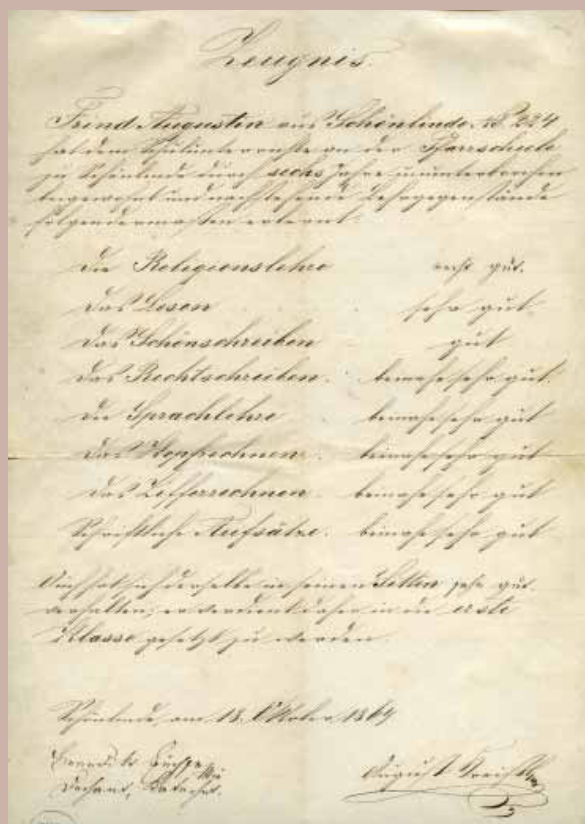 Zeugnis.
Frind Augustin aus Schönlinde, N. 224
hat dem Schulunterrichte an der Pfarrschule
zu Schönlinde durch sechs Jahre ununterbrochen
beigewohnt und nachstehende Lehrgegenstände
folgendermassen erlernt:
Die Religionslehre recht gut.
das Lesen sehr gut
das Schönschreiben gut
das Rechtschreiben. beinahe sehr gut.
die Sprachlehre beinahe sehr gut
das Kopfrechnen. beinahe sehr gut
das Zifferrechnen. beinahe sehr gut
Schriftliche Aufsätze. beinahe sehr gut
Auch hat sich derselbe in seinen Sitten sehr gut
verhalten; er verdient daher in die erste
Klasse gesetzt zu werden.
Schönlinde, am 18. Oktober 1864
Dechant, Katechet.
August